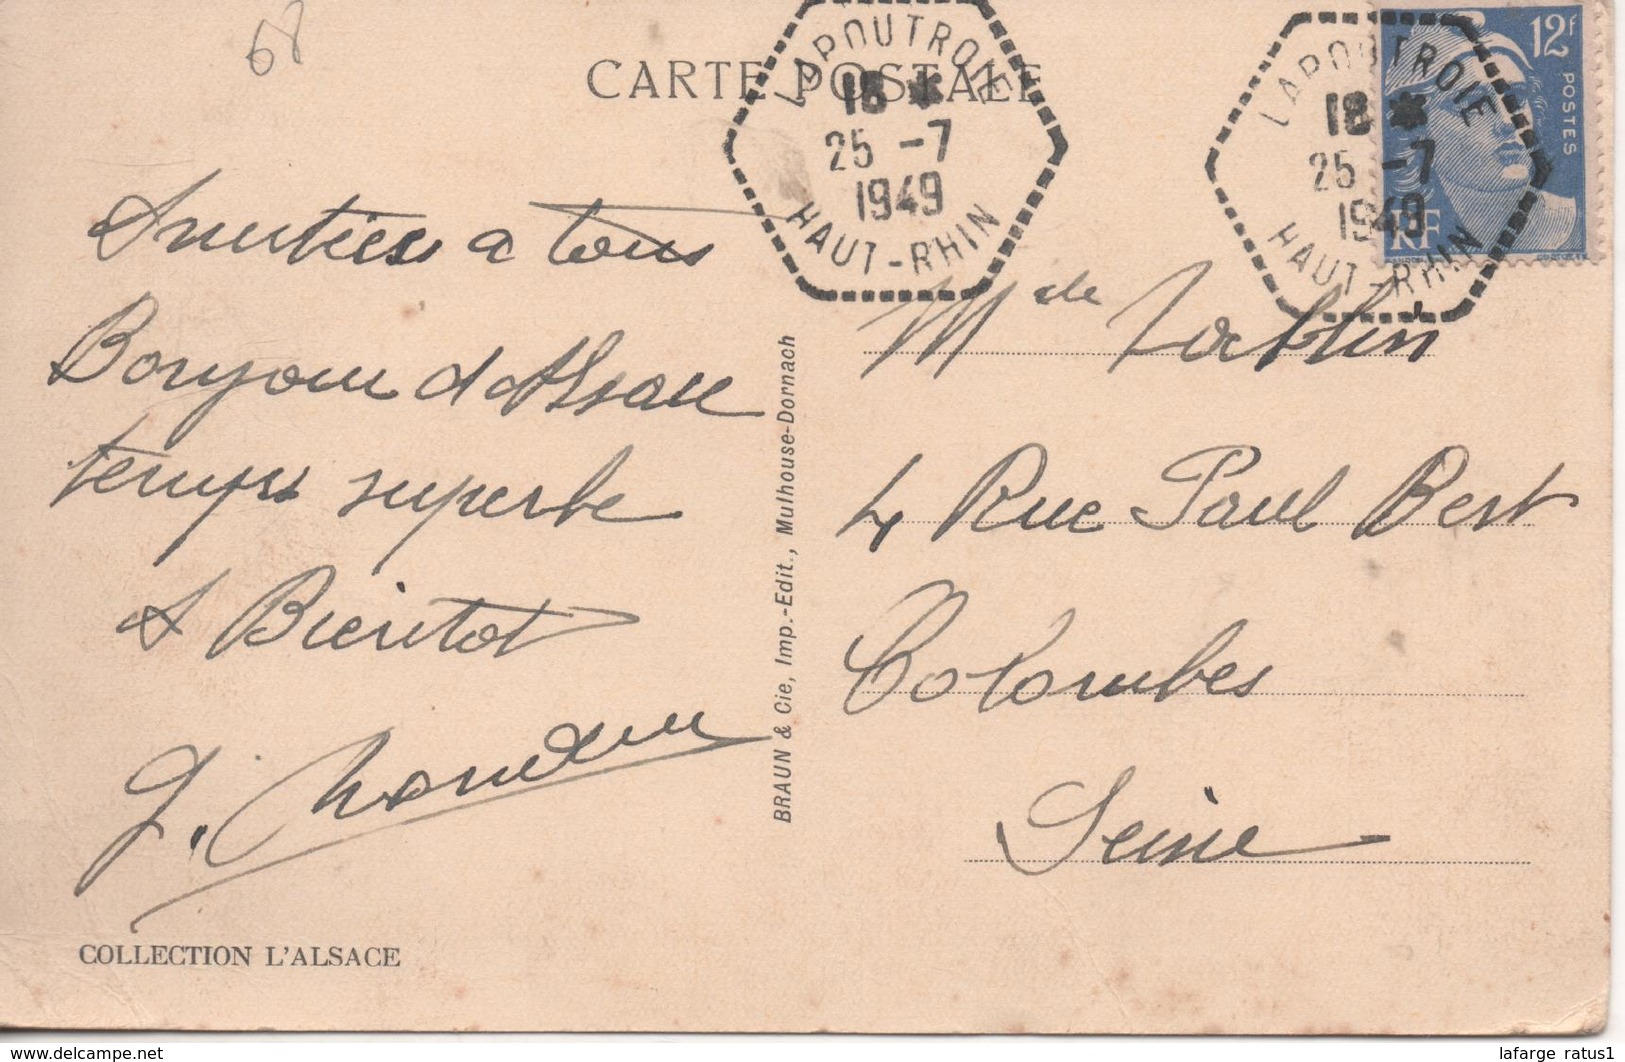 68
CARTE POSTALE
LAPOUTROIE
18 *
25 -7
1949
HAUT-RHIN
LAPOUTROIE
18 *
25 -7
1949
HAUT-RHIN
12F
POSTES
RF
Amitiés a tous
Bonjour d'Alsace
temps superbe
A Bientot
COLLECTION L'ALSACE
BRAUN & Cie, Imp.-Edit., Mulhouse-Dornach
4 Rue Paul Bert
Colombes
Seine
www.delcampe.net
lafarge_ratus1